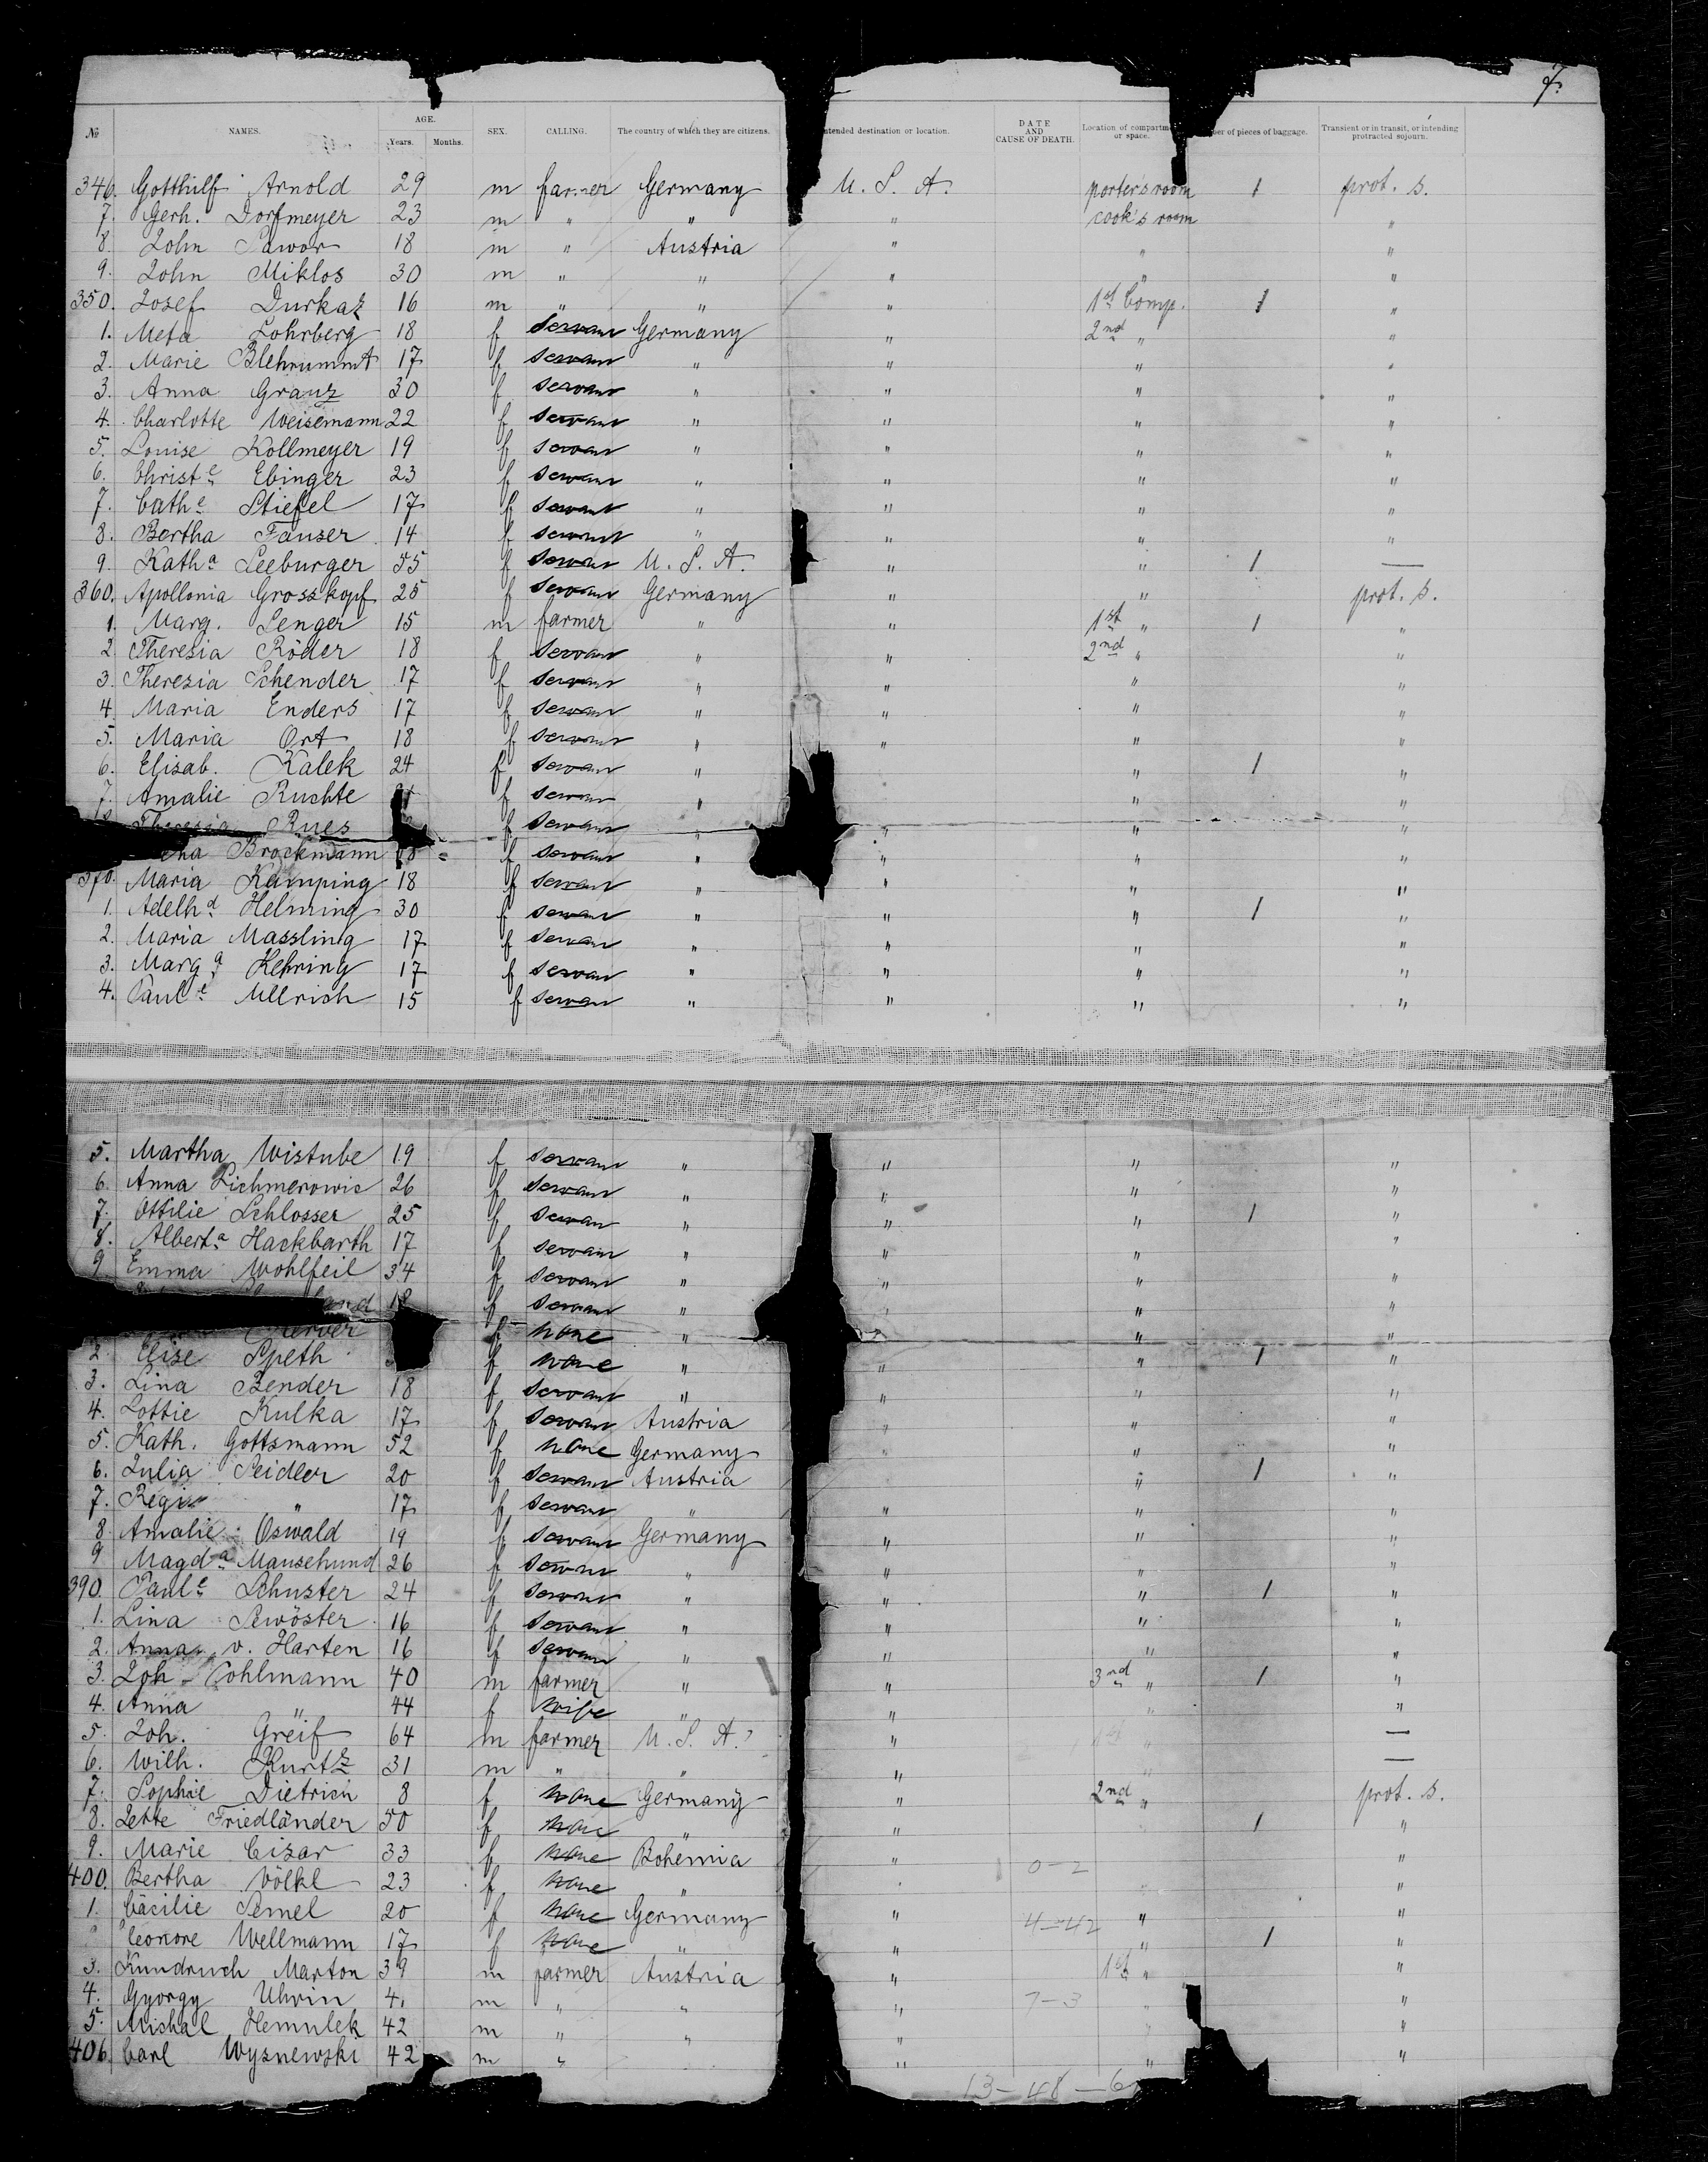 7.
№ NAMES. AGE. Years. Months. SEX. CALLING. The country of which they are citizens. ntended destination or location. DATE AND CAUSE OF DEATH. Location of compartm or space. er of pieces of baggage. Transient or in transit, or intending protracted sojourn.
346. Gotthilf Arnold 29 m farmer Germany U. S. A. porter's room 1 prot. s.
7. Gerh. Dorfmeyer 23 m " " " cook's room "
8. John Sawor 18 m " Austria " " "
9. John Miklos 30 m " " " " "
350. Josef Durkaz 16 m " " " 1st Comp. 1 "
1. Meta Lohrberg 18 f Servant Germany " 2nd " "
2. Marie 17 f servant " " " "
3. Anna Granz 30 f servant " " " "
4. Charlotte Weisemann 22 f servant " " " "
5. Louise Kollmeyer 19 f servant " " " "
6. Christe Ebinger 23 f servant " " " "
7. Cathe Stiefel 17 f servant " " " "
8. Bertha Fauser 14 f servant " " " "
9. Katha Seeburger 55 f servant U. S. A. " " 1 —
360. Apollonia Grosskopf 25 f servant Germany " " prot. s.
1. Marg. Senger 15 m farmer " " 1st " 1 "
2. Theresia Röder 18 f servant " " 2nd " "
3. Theresia Schender 17 f servant " " " "
4 Maria Enders 17 f servant " " " "
5. Maria Ort 18 f servant " " " "
6. Elisab. Kalek 24 f servant " " 1 "
7. Amalie Ruchte f servant " " "
Theresia Rues f servant " " " "
Brockmann 18 f servant " " " "
370. Maria Kamping 18 f servant " " " "
1. Adelhd Helming 30 f servant " " " 1 "
2. Maria Massling 17 f servant " " " "
3. Marga Kehring 17 f servant " " " "
4. Paule Ullrich 15 f servant " " " "
5. Martha Wistube 19 f servant " " " "
6. Anna Lichmerowic 26 f servant " " " "
7. Ottilie Schlosser 25 f servant " " " 1 "
8. Alberta Hackbarth 17 f servant " " " "
9 Emma Wohlfeil 34 f servant " " " "
18 f servant " " "
f none " " "
2. Elise Speth f none " " " 1 "
3. Lina Bender 18 f servant " " " "
4. Lottie Kulka 17 f servant Austria " " "
5. Kath. Gottsmann 52 f none Germany " " "
6. Julia Seidler 20 f servant Austria " 1 "
7. " 17 f servant " " " "
8. Amalie Oswald 19 f servant Germany " " "
9 Magda Mausehund 26 f servant " " " "
390. Paule Schuster 24 f servant " " " 1 "
1. Lina Sewöster 16 f servant " " " "
2. Anna v. Harten 16 f servant " " " "
3. Joh. Pohlmann 40 m farmer " " 3nd " 1 "
4. Anna " 44 f wife " " "
5. Joh. Greif 64 m farmer U. S. A. " 1st " —
6. Wilh. Kurtz 31 m " " " " —
7. Sophie Dietrich 8 f none Germany " 2nd " prot. s.
8. Jette Friedländer 50 f none " " 1 "
9. Marie Cizar 33 f none Bohemia " 0-2 "
400. Bertha Völkl 23 f none " " "
1. Cäcilie Semel 20 f none Germany " 4-42 " "
Eleonore Wellmann 17 f none " " " 1 "
3. Kundruch Marton 39 m farmer Austria " 1st " "
4. Gyorgy Uhrin m " " " 7-3 "
5. Michal Hemulek 42 m " " " " "
406. Carl Wysnewski 42 m " " " "
13-48-6